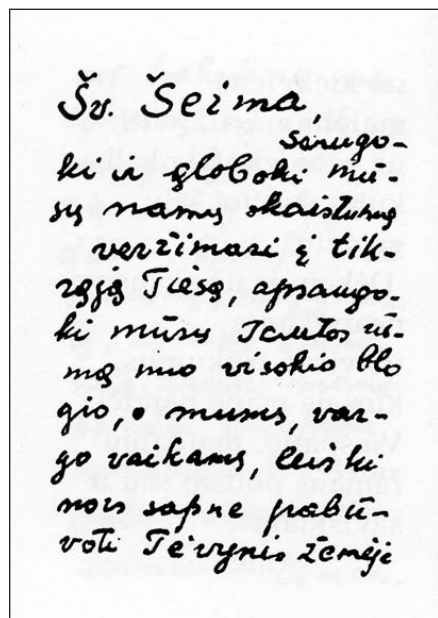 Šv. Šeima,
saugo-
ki ir globoki mū-
sų namų skaistumą
veržimasi į tik-
rąją Tiesą, apsaugo-
ki mūsų Tautos šei-
mą nuo visokio blo
gio, o mums, var-
go vaikams, leiski
nors sapne pabū-
voti Tėvynės žemėje